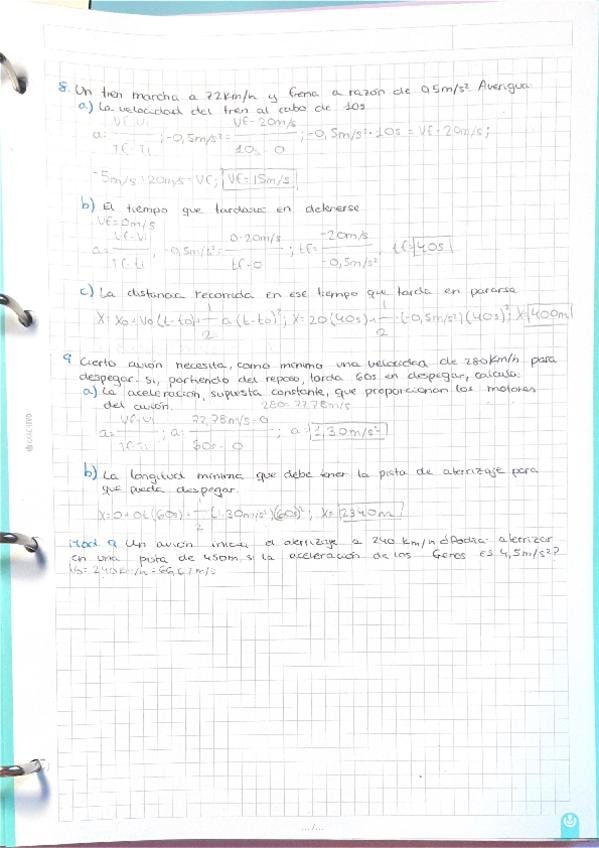 8. Un tren marcha a 72km/h y frena a razón de 0,5m/s² Averigua
a) La velocidad del tren al cabo de 10s
a= Vf-Vi / Tf-Ti ; -0,5m/s² = Vf-20m/s / 10s-0 ; -0,5m/s²·10s = Vf-20m/s;
-5m/s+20m/s=Vf; Vf=15m/s
b) El tiempo que tardara en detenerse
Vf=0m/s
a= Vf-Vi / Tf-ti ; -0,5m/s²= 0-20m/s / tf-0 ; tf= -20m/s / -0,5m/s² tf=40s
c) La distancia recorrida en ese tiempo que tarda en pararse
X=Xo+Vo(t-to)+ 1/2 a(t-to)²; X=20(40s)+ 1/2 ·(-0,5m/s²)(40s)²; X=400m
9 Cierto avión necesita, como mínimo una velocidad de 280km/h para
despegar. Si, partiendo del reposo, tarda 60s en despegar, calcula:
a) La aceleración, supuesta constante, que proporcionan los motores
del avión. 280= 77,78m/s
a= Vf-Vi / Tf-Ti ; a= 77,78m/s-0 / 60s-0 ; a=1,30m/s²
b) La longitud mínima que debe tener la pista de aterrizaje para
que pueda despegar.
X=0+0(60s)+ 1/2 (1,30m/s²)(60s)²; X=2340m
9 Un avión inicia el aterrizaje a 240 km/h ¿Podría aterrizar
en una pista de 450m si la aceleración de los frenos es 4,5m/s²?
Vo=240km/h=66,67m/s
.../...